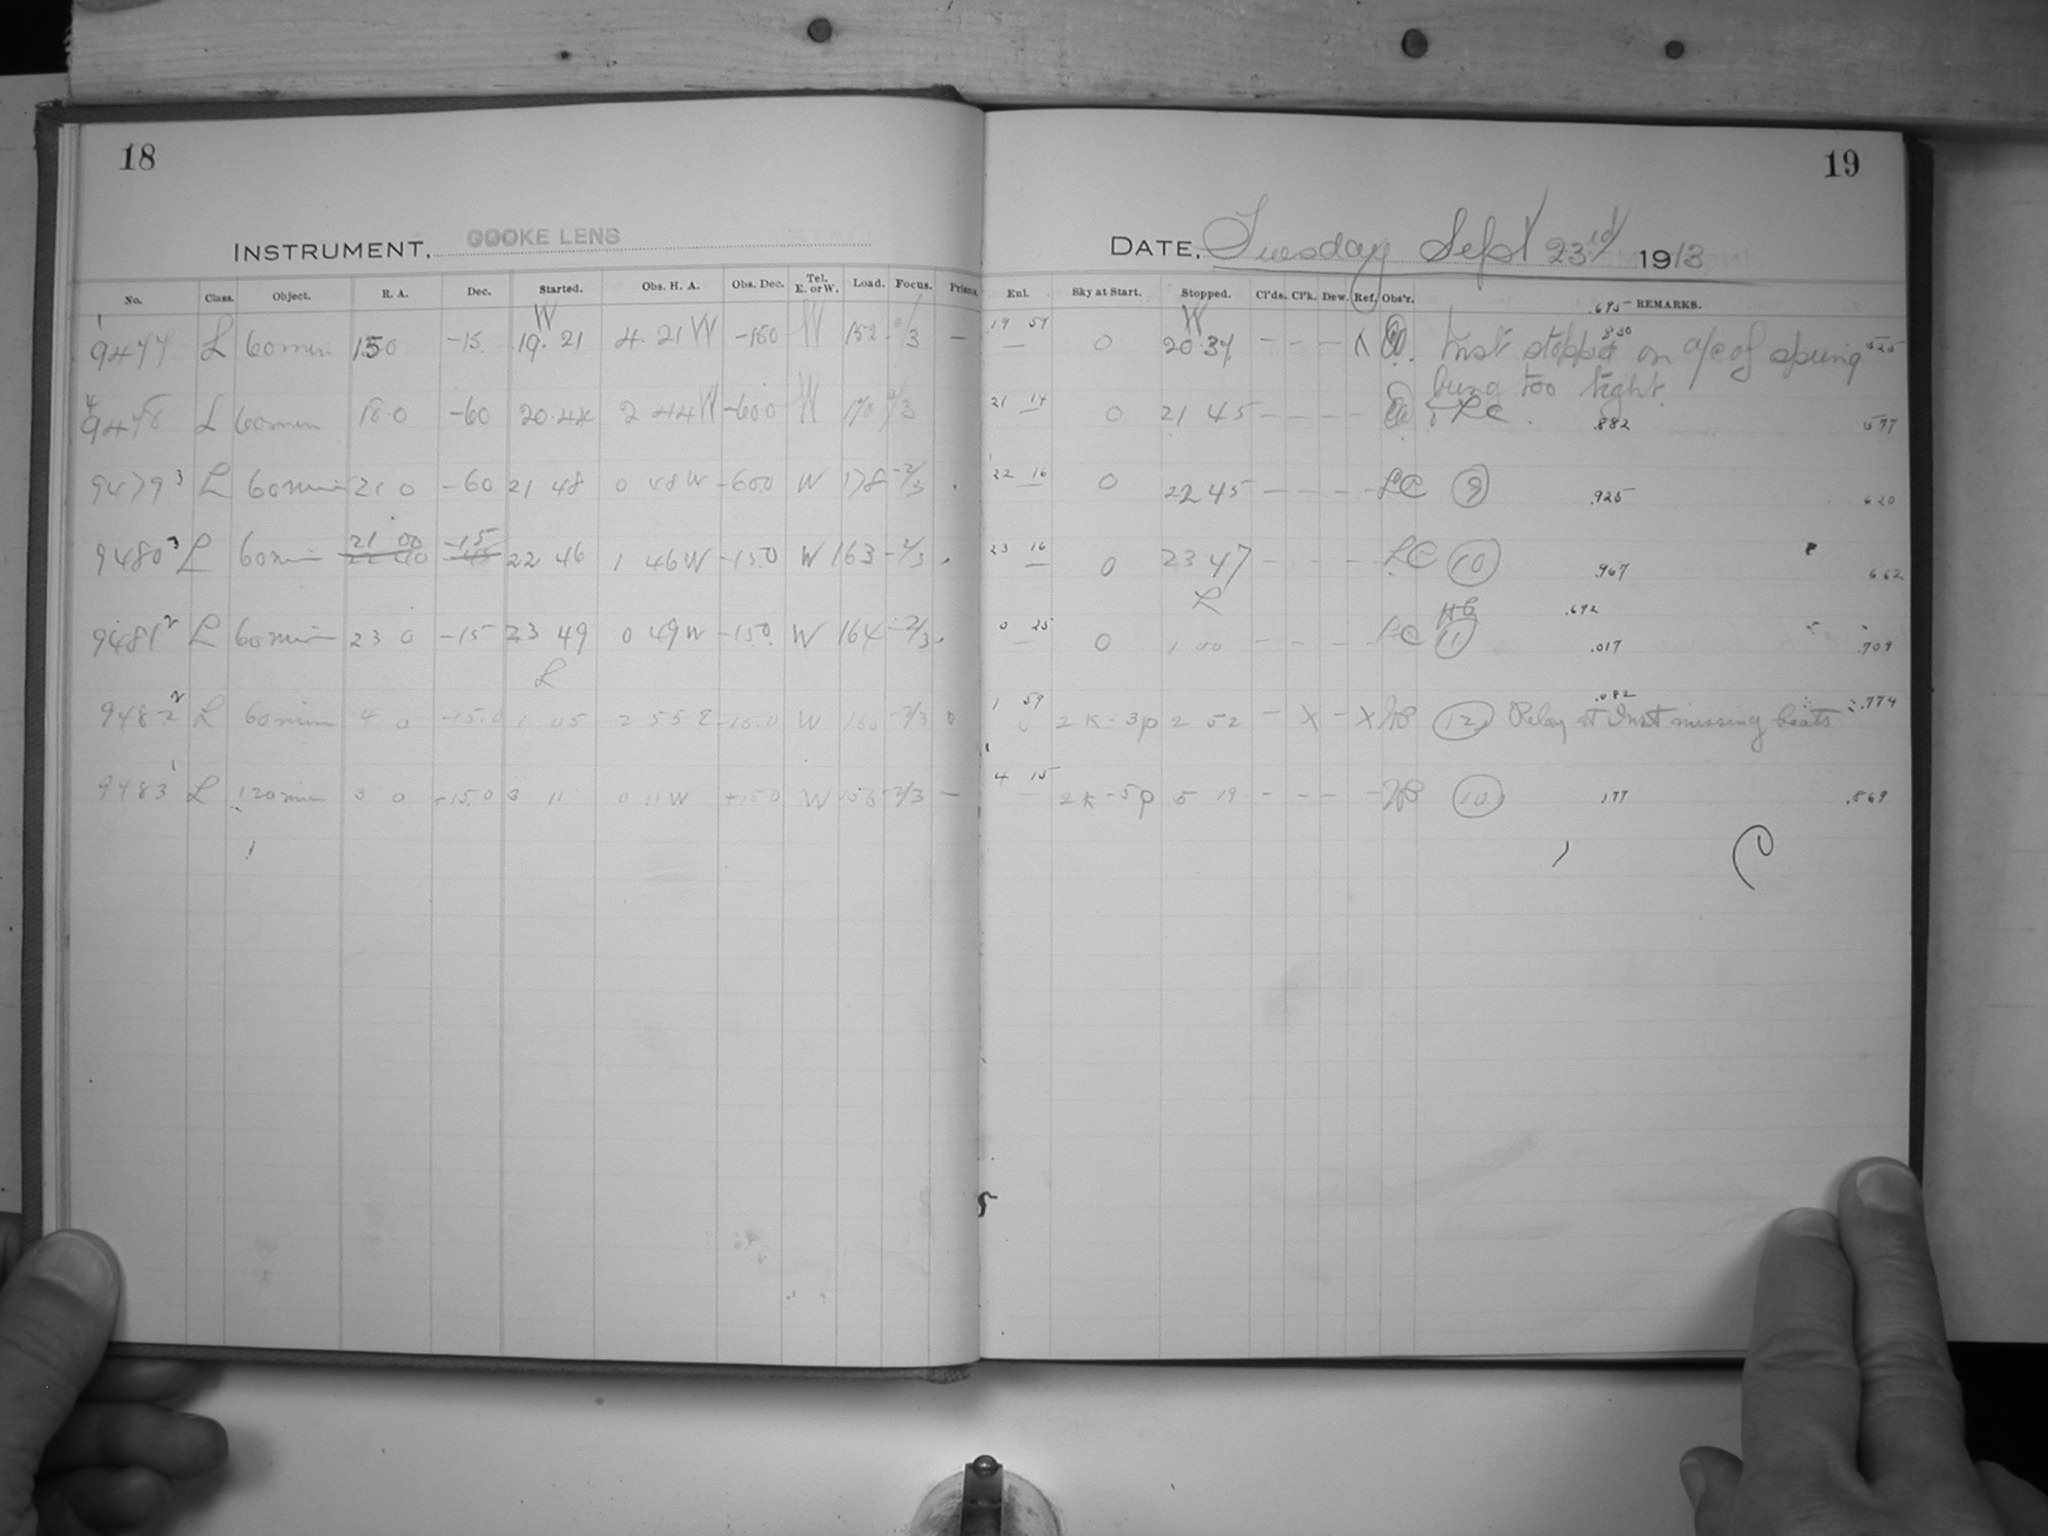 18
INSTRUMENT, COOKE LENS
No. Class. Object. R. A. Dec. Started. Obs. H. A. Obs. Dec. Tel. E. or W. Load. Focus. Prism.
1 W
9477 L 60 min 15 0 -15 19. 21 4. 21 W -15 0 W 152 -2/3 —
4
9478 L 60 min 18 0 -60 20.44 2 44 W -60 0 W 170 -2/3
9479 3 L 60 min 21 0 -60 21 48 0 48 W -60 0 W 178 -2/3
21 00 -15
9480 3 L 60 min 22 46 1 46 W -15.0 W 163 -2/3
9481 2 L 60 min 23 0 -15 23 49 0 49 W -15 0 W 164 -2/3
L
9482 2 L 60 min 4 0 -15.0 1 05 2 55 E -15.0 W 160 -2/3 0
1
9483 L 120 min 3 0 +15.0 3 11 0 11 W +15.0 W 156 -2/3 —
19
DATE, Tuesday Sept 23rd 1913
Enl. Sky at Start. Stopped. Cl'ds. Cl'k. Dew. Ref. Obs'r. .695 REMARKS.
W
19 59 — 0 20.37 - - - X Inst stopped .830 on a/c of spring 525
being too tight
21 14 — 0 21 45 - - - - & LC .882 577
22 16 — 0 22 45 - - - - LC 9 .925 620
23 16 — 0 23 47 - - - - LC 10 .967 662
L HB .692
0 25 — 0 1 00 - - - - LC 11 .017 .709
.082
1 59 2K-3p 2 52 - X - X HB 12 Relay at Inst missing beats .774
4 15 — 2K-5p 5 19 - - - - HB 10 .177 .869